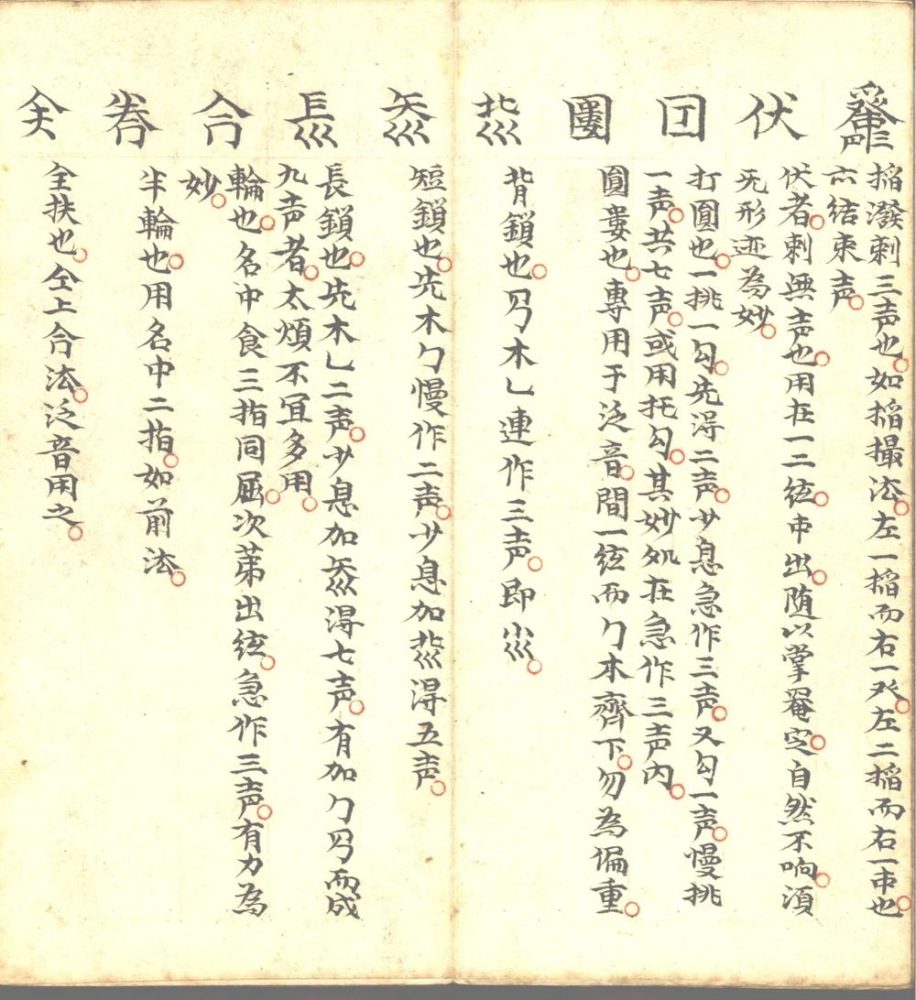 掐潑剌三声也。如掐撮法。左一掐而右一癶。左二掐而右一𠂹也。
六结束声。
伏
伏者。剌無声也。用在一二絃。𠂹出。随以掌罨定。自然不响。湏
无形迹為妙。
囙
打圓也。一挑一勾。先淂二声。少息急作三声。又勾一声。慢挑
一声。共七声。或用托勾。其妙処在急作三声内。
圓婁也。専用于泛音。間一絃而勹木齊下。勿為偏重。
背鎖也。㔿木乚連作三声。即
短鎖也。先木勹慢作二声。少息加 淂五声。
長鎖也。先木乚二声。少息加 淂七声。有加勹㔿而成
九声者。太煩不宜多用。
輪也。名中食三指同屈。次苐出絃。急作三声。有力為
妙。
半輪也。用名中二指。如前法。
全扶也。仝上合法。泛音用之。